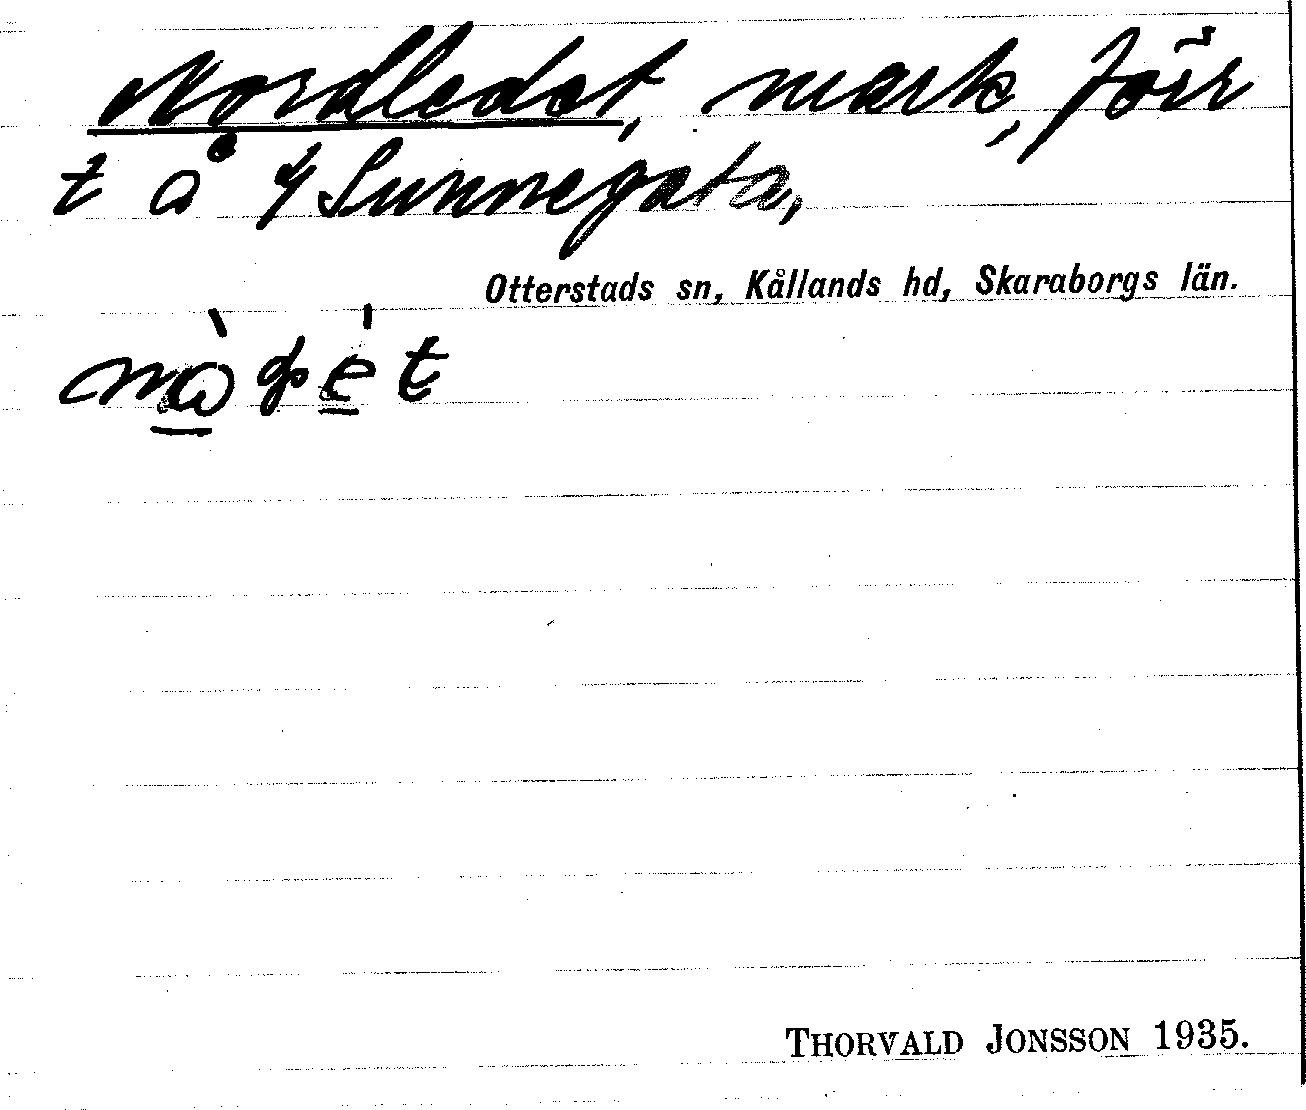 Nordledet, mark, förr
t å f Sunnegata,
Otterstads sn, Kållands hd, Skaraborgs län.
THORVALD JONSSON 1935.